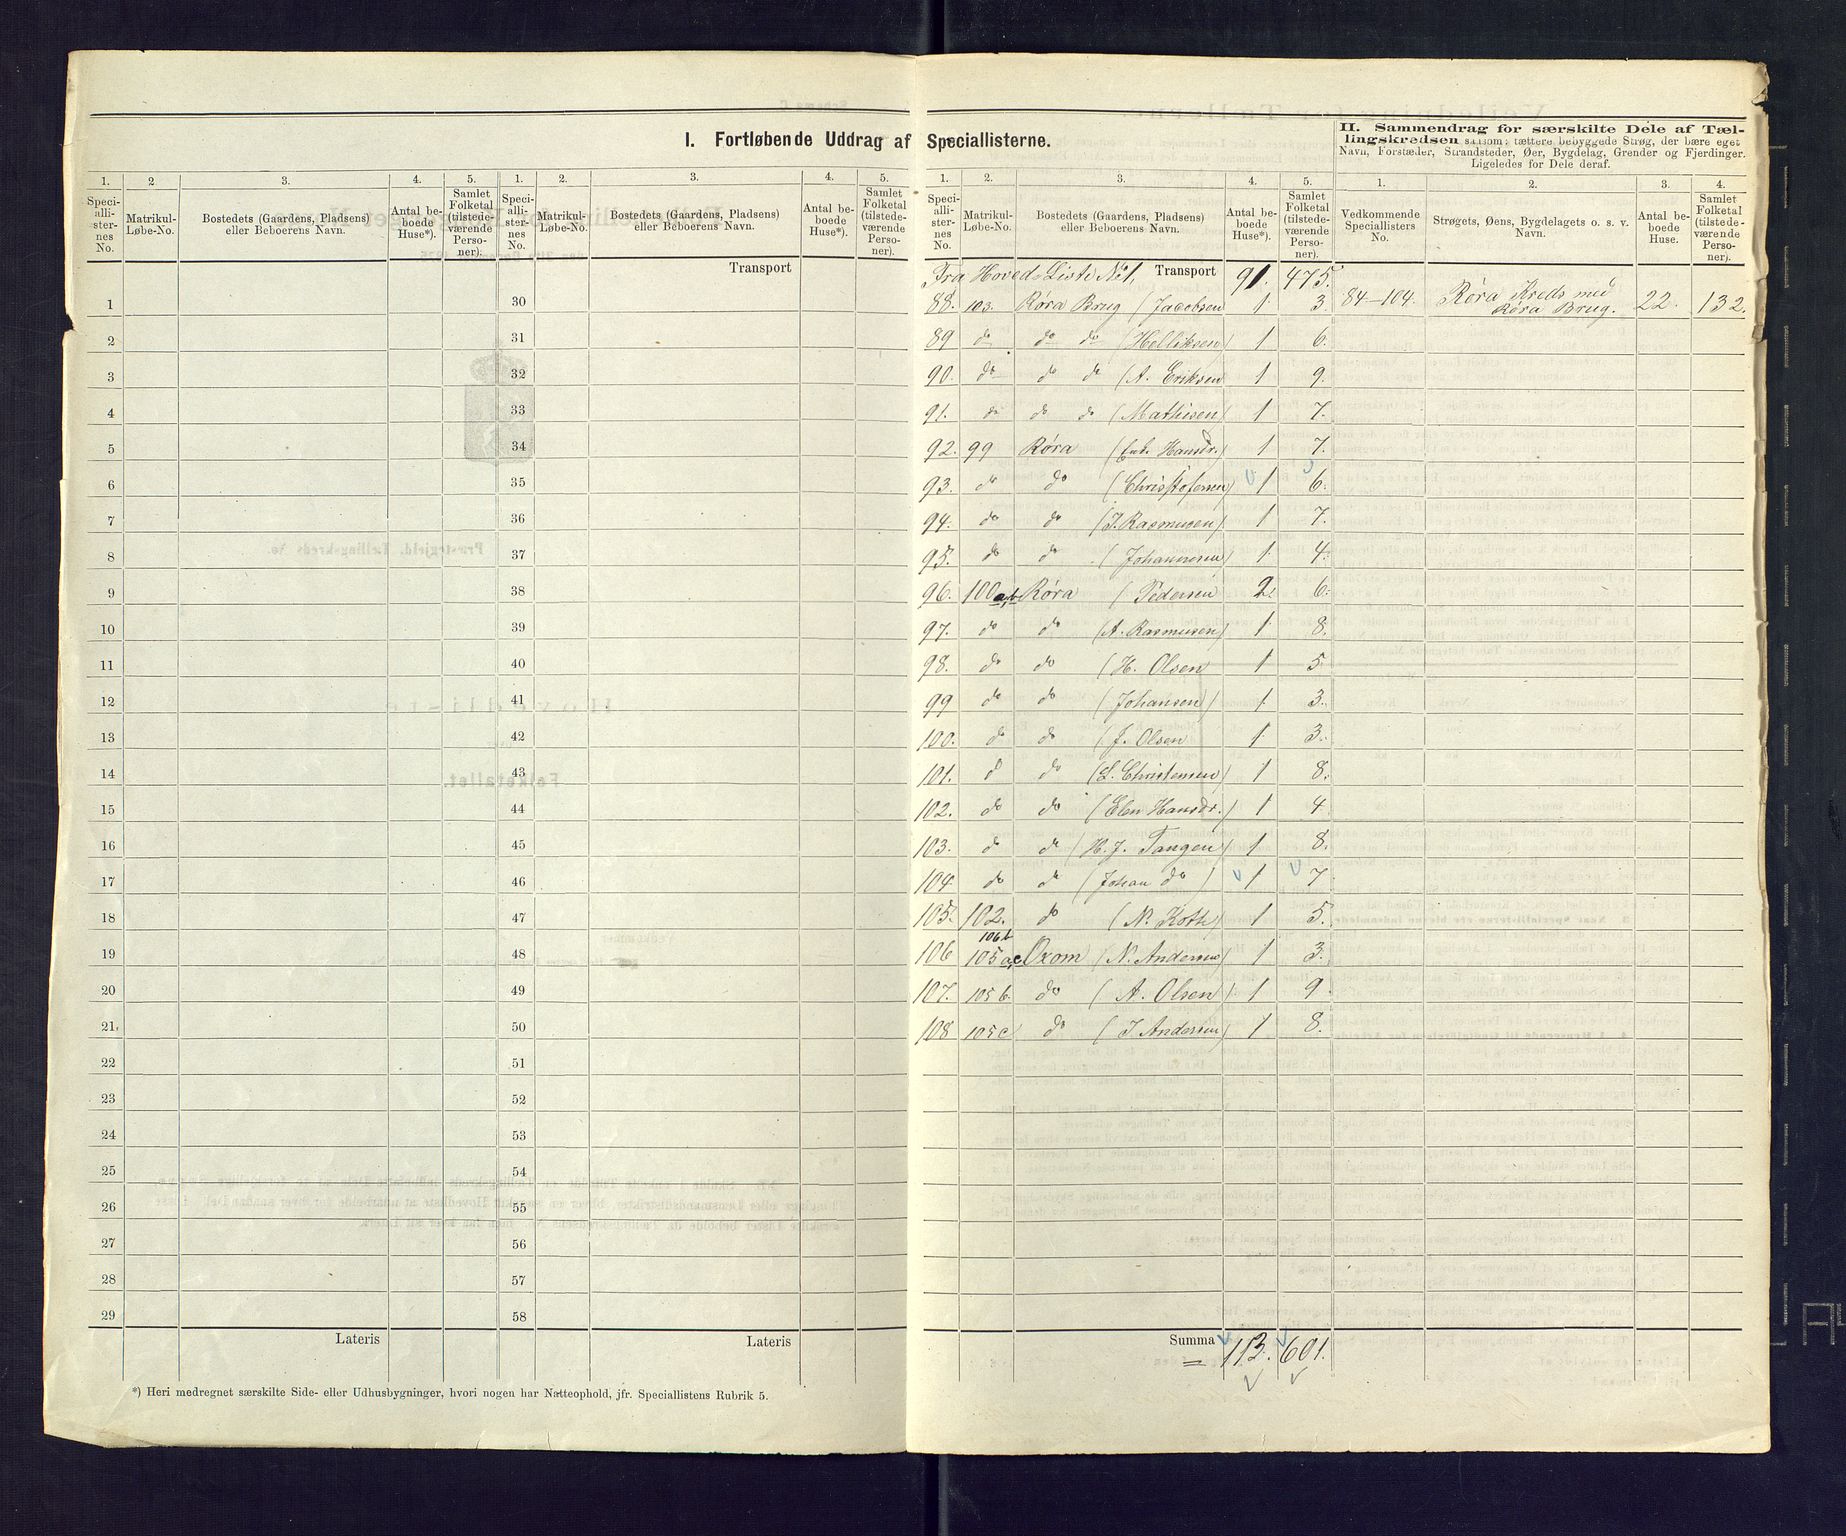 I. Fortløbende Uddrag af Speciallisterne.
II. Sammendrag for særskilte Dele af Tæl-
lingskredsen saasom: tættere bebyggede Strøg, der bære eget
Navn, Forstæder, Strandsteder, Øer, Bygdelag, Grender og Fjerdinger.
Ligeledes for Dele deraf.
1. 2 3. 4. 5. 1. 2. 3. 4. 5.
Speciallisternes No. Matrikul-Løbe-No. Bostedets (Gaardens, Pladsens) eller Beboerens Navn. Antal beboede Huse*). Samlet Folketal (tilstedeværende Personer).
Speciallisternes No. Matrikul-Løbe-No. Bostedets (Gaardens, Pladsens) eller Beboerens Navn. Antal beboede Huse*). Samlet Folketal (tilstedeværende Personer).
Transport
1 30
2 31
3 32
4 33
5 34
6 35
7 36
8 37
9 38
10 39
11 40
12 41
13 42
14 43
15 44
16 45
17 46
18 47
19 48
20 49
21 50
22 51
23 52
24 53
25 54
26 55
27 56
28 57
29 58
Lateris Lateris
*) Heri medregnet særskilte Side- eller Udhusbygninger, hvori nogen har Natteophold, jfr. Speciallistens Rubrik 5.
1. 2. 3. 4. 5. 1. 2. 3. 4.
Speciallisternes No. Matrikul-Løbe-No. Bostedets (Gaardens, Pladsens) eller Beboerens Navn. Antal beboede Huse*). Samlet Folketal (tilstedeværende Personer).
Vedkommende Speciallisters No. Strøgets, Øens, Bygdelagets o. s. v. Navn. Antal beboede Huse. Samlet Folketal (tilstedeværende Personer).
Fra Hoved-Liste No 1, Transport 91. 475.
88. 103. Røra Brug (Jacobsen 1 3. 84-104. Røra Kreds med Røra Brug. 22. 132.
89 do do do (Helliksen) 1 6.
90. do do do (A. Eriksen 1 9.
91. do do do (Mathisen) 1 7.
92. 99 Røra (Enk. Hansdr.) 1 7.
93. do do (Christofersen) 1 6.
94. do do (J. Rasmusen) 1 7.
95. do do (Johannesen) 1 4.
96. 100 a,b Røra (Pedersen 2. 6.
97. do do (A. Rasmusen) 1 8.
98. do do (H. Olsen 1 5
99 do do (Johansen) 1 3.
100. do do (J. Olsen 1 3.
101. d do (L. Christensen) 1 8.
102. do do (Elen Hansdr.) 1 4
103. do do (H. J. Tangen) 1 8.
104 do do (Johan do) 1 7
105. 102. do (N. Koth) 1 5.
106 b
106 105 a,c Oxom (N. Andersen) 1 3.
107. 105 b. do (A. Olsen) 1 9
108 105 c do (J Andersen) 1 8.
Summa 113. 601.